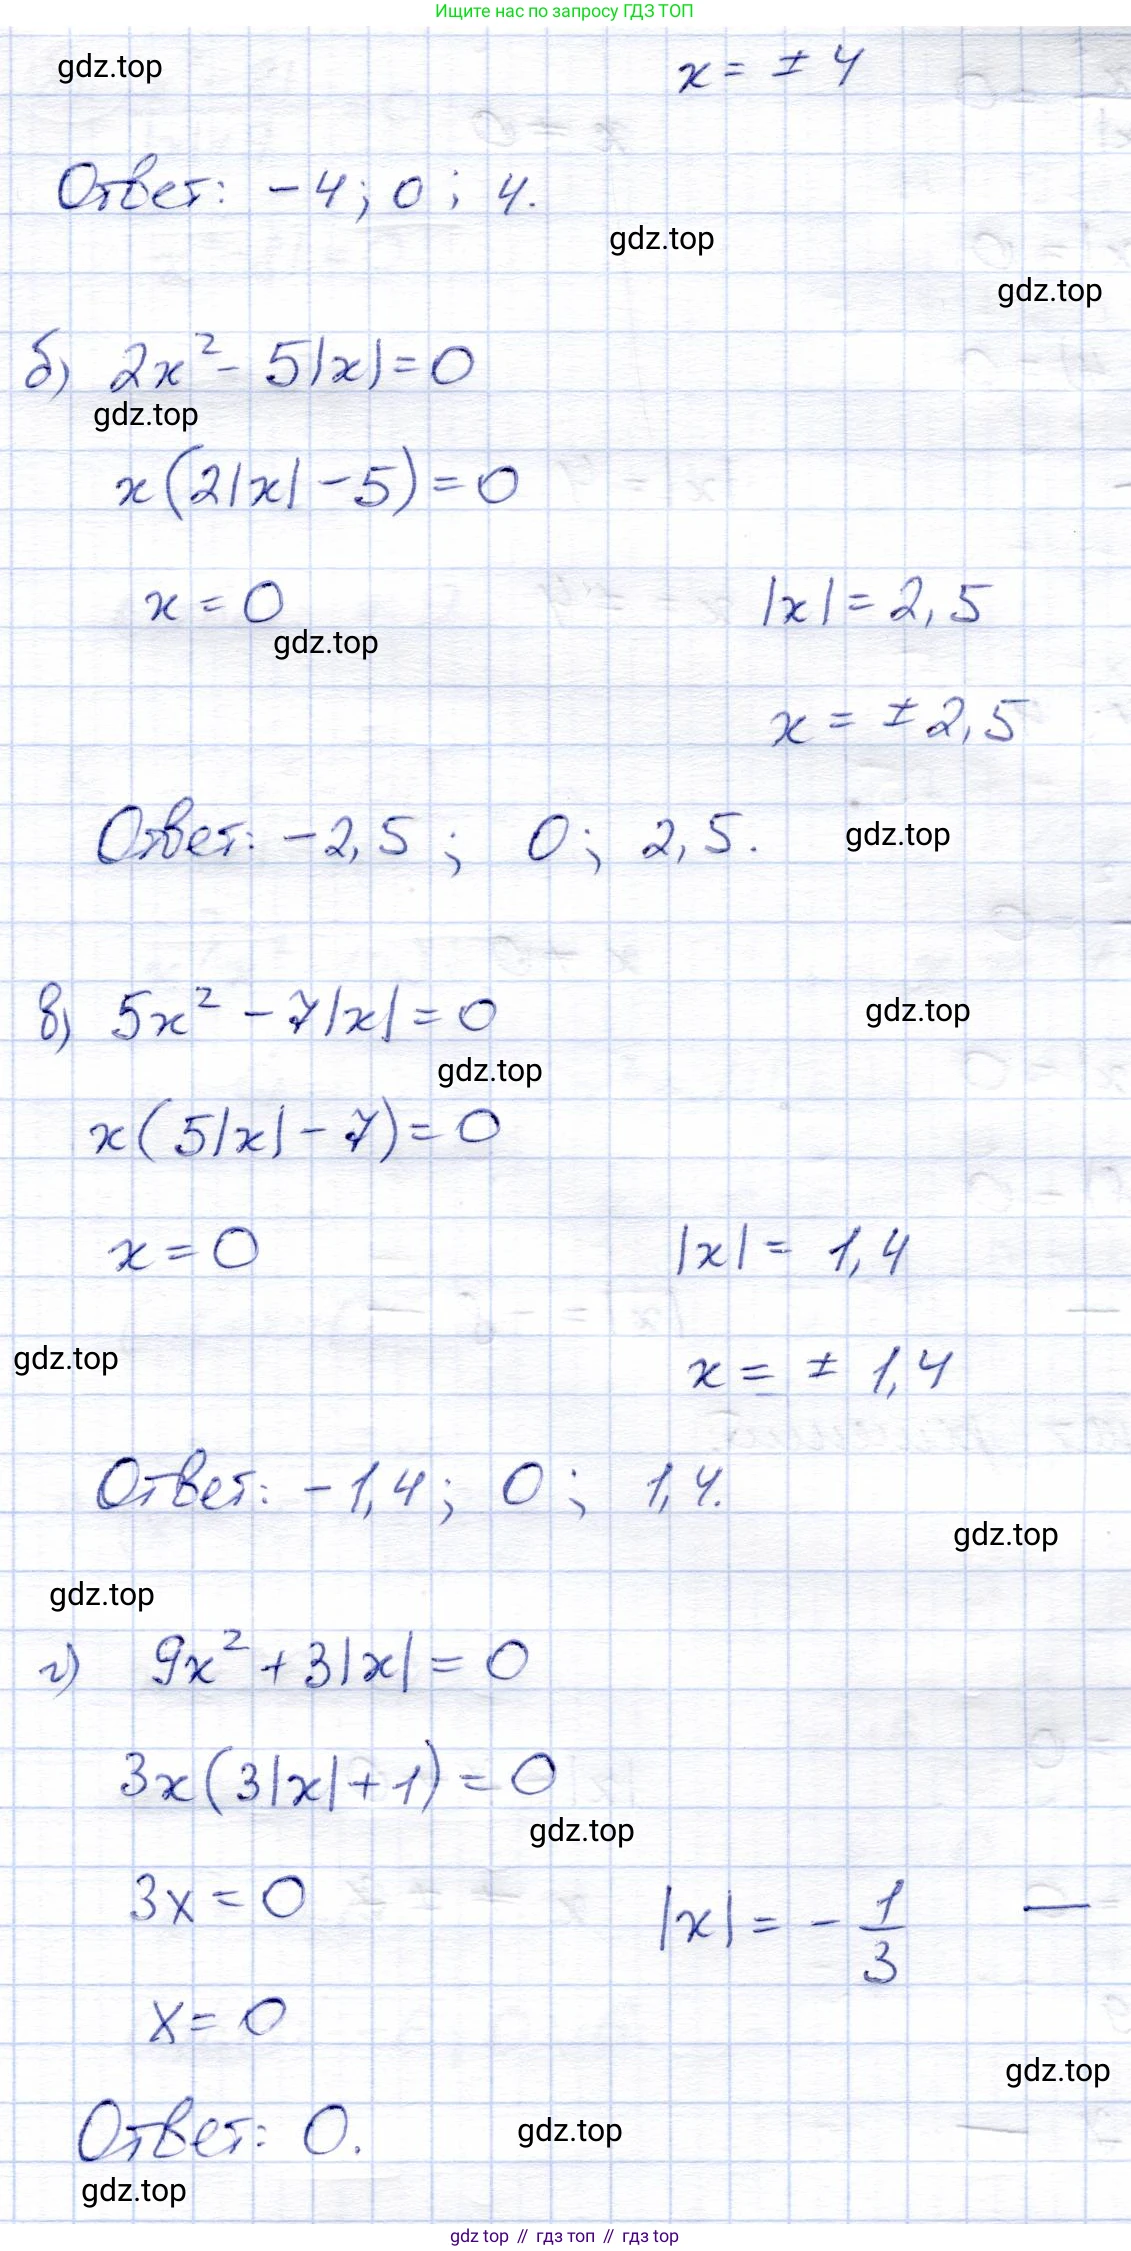 Ищите нас по запросу ГДЗ ТОП
gdz.top
x = ± 4
Ответ: -4; 0; 4.
gdz.top
gdz.top
б) 2x² - 5|x| = 0
gdz.top
x(2|x| - 5) = 0
x = 0
|x| = 2,5
gdz.top
x = ± 2,5
Ответ: -2,5; 0; 2,5.
gdz.top
в) 5x² - 7|x| = 0
gdz.top
gdz.top
x(5|x| - 7) = 0
x = 0
|x| = 1,4
gdz.top
x = ± 1,4
Ответ: -1,4; 0; 1,4.
gdz.top
gdz.top
г) 9x² + 3|x| = 0
3x(3|x| + 1) = 0
gdz.top
3x = 0
|x| = - 1/3 —
x = 0
gdz.top
Ответ: 0.
gdz.top
gdz.top
gdz top // гдз топ // гдз top